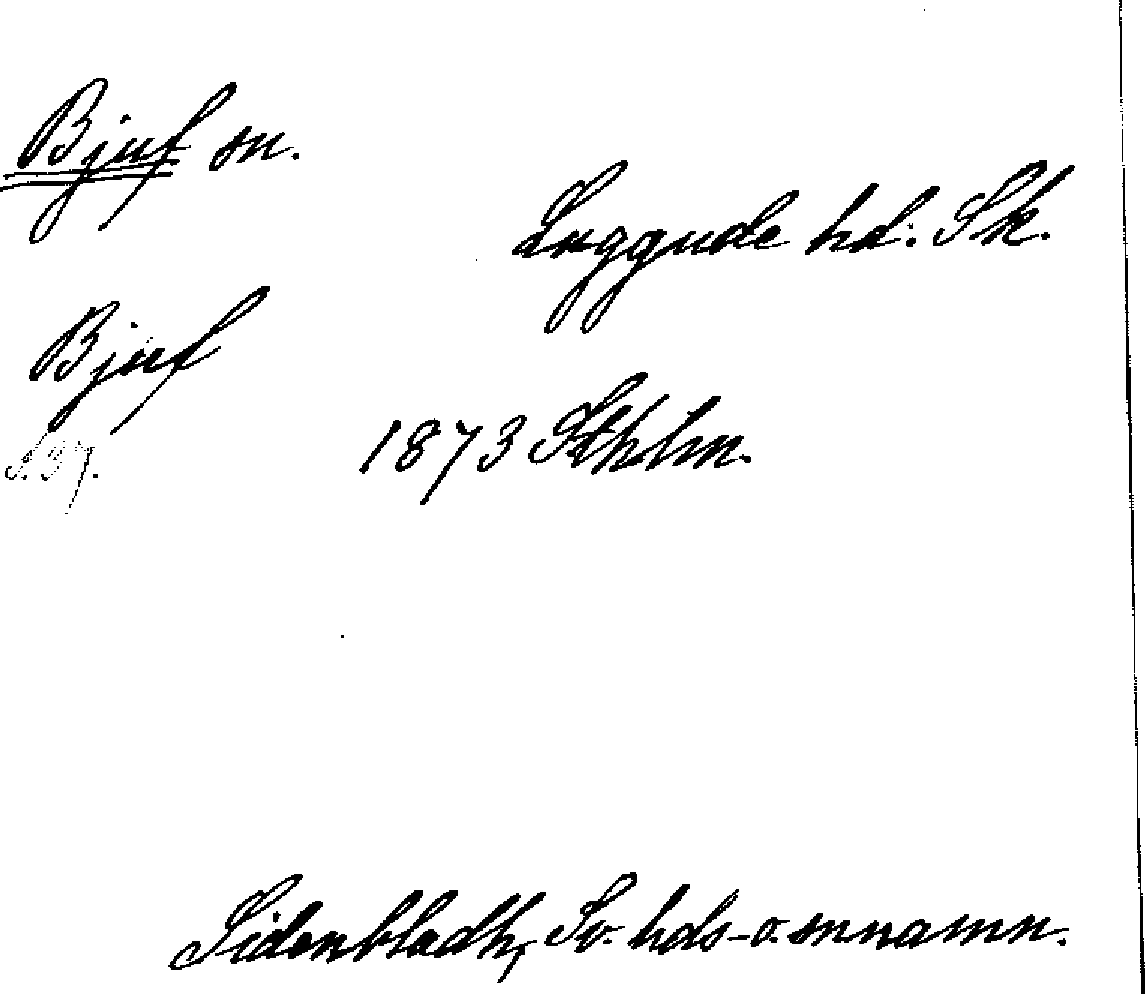 Bjuf sn.
Luggude hd. Sk.
Bjuf
S. 37.
1873 Sthlm.
Sidenbladh, Sv. hds- o. snnamn.